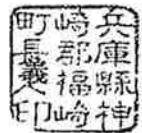 兵庫縣神
崎郡福崎
町長印